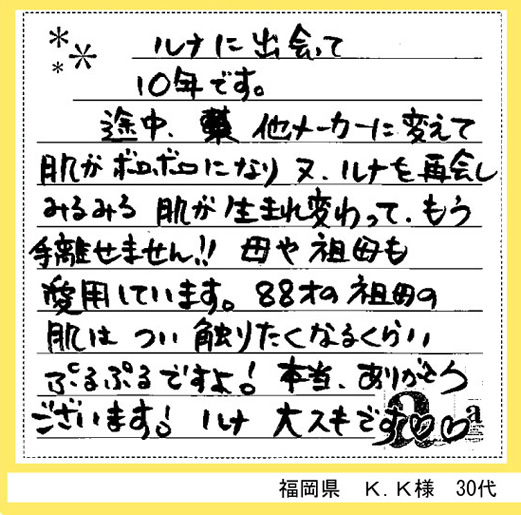 ルナに出会って
10年です。
途中、他メーカーに変えて
肌がボロボロになり又、ルナを再会し
みるみる肌が生まれ変わって、もう
手離せません!! 母や祖母も
愛用しています。88才の祖母の
肌はつい触りたくなるくらい
ぷるぷるですよ! 本当、ありがとう
ございます! ルナ 大スキです♡♡
a a
福岡県 K.K様 30代